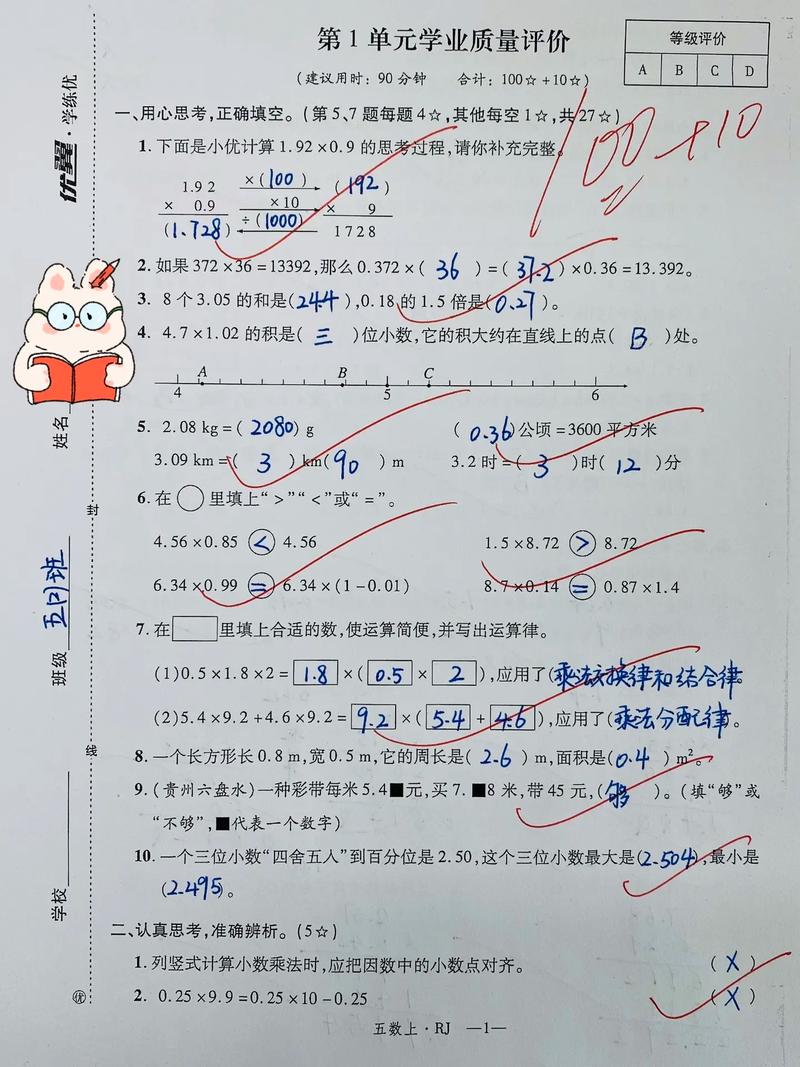 第1单元学业质量评价
(建议用时:90分钟 合计:100☆+10☆)
等级评价
A B C D
100+10
优翼·学练优
一、用心思考,正确填空。(第5、7题每题4☆,其他每空1☆,共27☆)
1.下面是小优计算1.92×0.9的思考过程,请你补充完整。
1.92 ×(100) (192)
× 0.9 ×10 × 9
(1.728) ÷(1000) 1728
2.如果372×36=13392,那么0.372×(36)=(37.2)×0.36=13.392。
3. 8个3.05的和是(24.4),0.18的1.5倍是(0.27)。
4. 4.7×1.02的积是(三)位小数,它的积大约在直线上的点(B)处。
A B C
4 5 6
5. 2.08 kg=(2080)g (0.36)公顷=3600平方米
3.09 km=(3)km(90)m 3.2时=(3)时(12)分
6.在○里填上“>”“<”或“=”。
4.56×0.85 < 4.56 1.5×8.72 > 8.72
6.34×0.99 = 6.34×(1-0.01) 8.7×0.14 = 0.87×1.4
7.在□里填上合适的数,使运算简便,并写出运算律。
(1)0.5×1.8×2=1.8×(0.5×2),应用了(乘法交换律和结合律)。
(2)5.4×9.2+4.6×9.2=9.2×(5.4+4.6),应用了(乘法分配律)。
8.一个长方形长0.8 m,宽0.5 m,它的周长是(2.6)m,面积是(0.4)m²。
9.(贵州六盘水)一种彩带每米5.4■元,买7.■8米,带45元,(够)。(填“够”或
“不够”,■代表一个数字)
10.一个三位小数“四舍五入”到百分位是2.50,这个三位小数最大是(2.504),最小是
(2.495)。
二、认真思考,准确辨析。(5☆)
1.列竖式计算小数乘法时,应把因数中的小数点对齐。 (X)
2. 0.25×9.9=0.25×10-0.25 (X)
五数上·RJ —1—
姓名
班级
学校
封
线
优